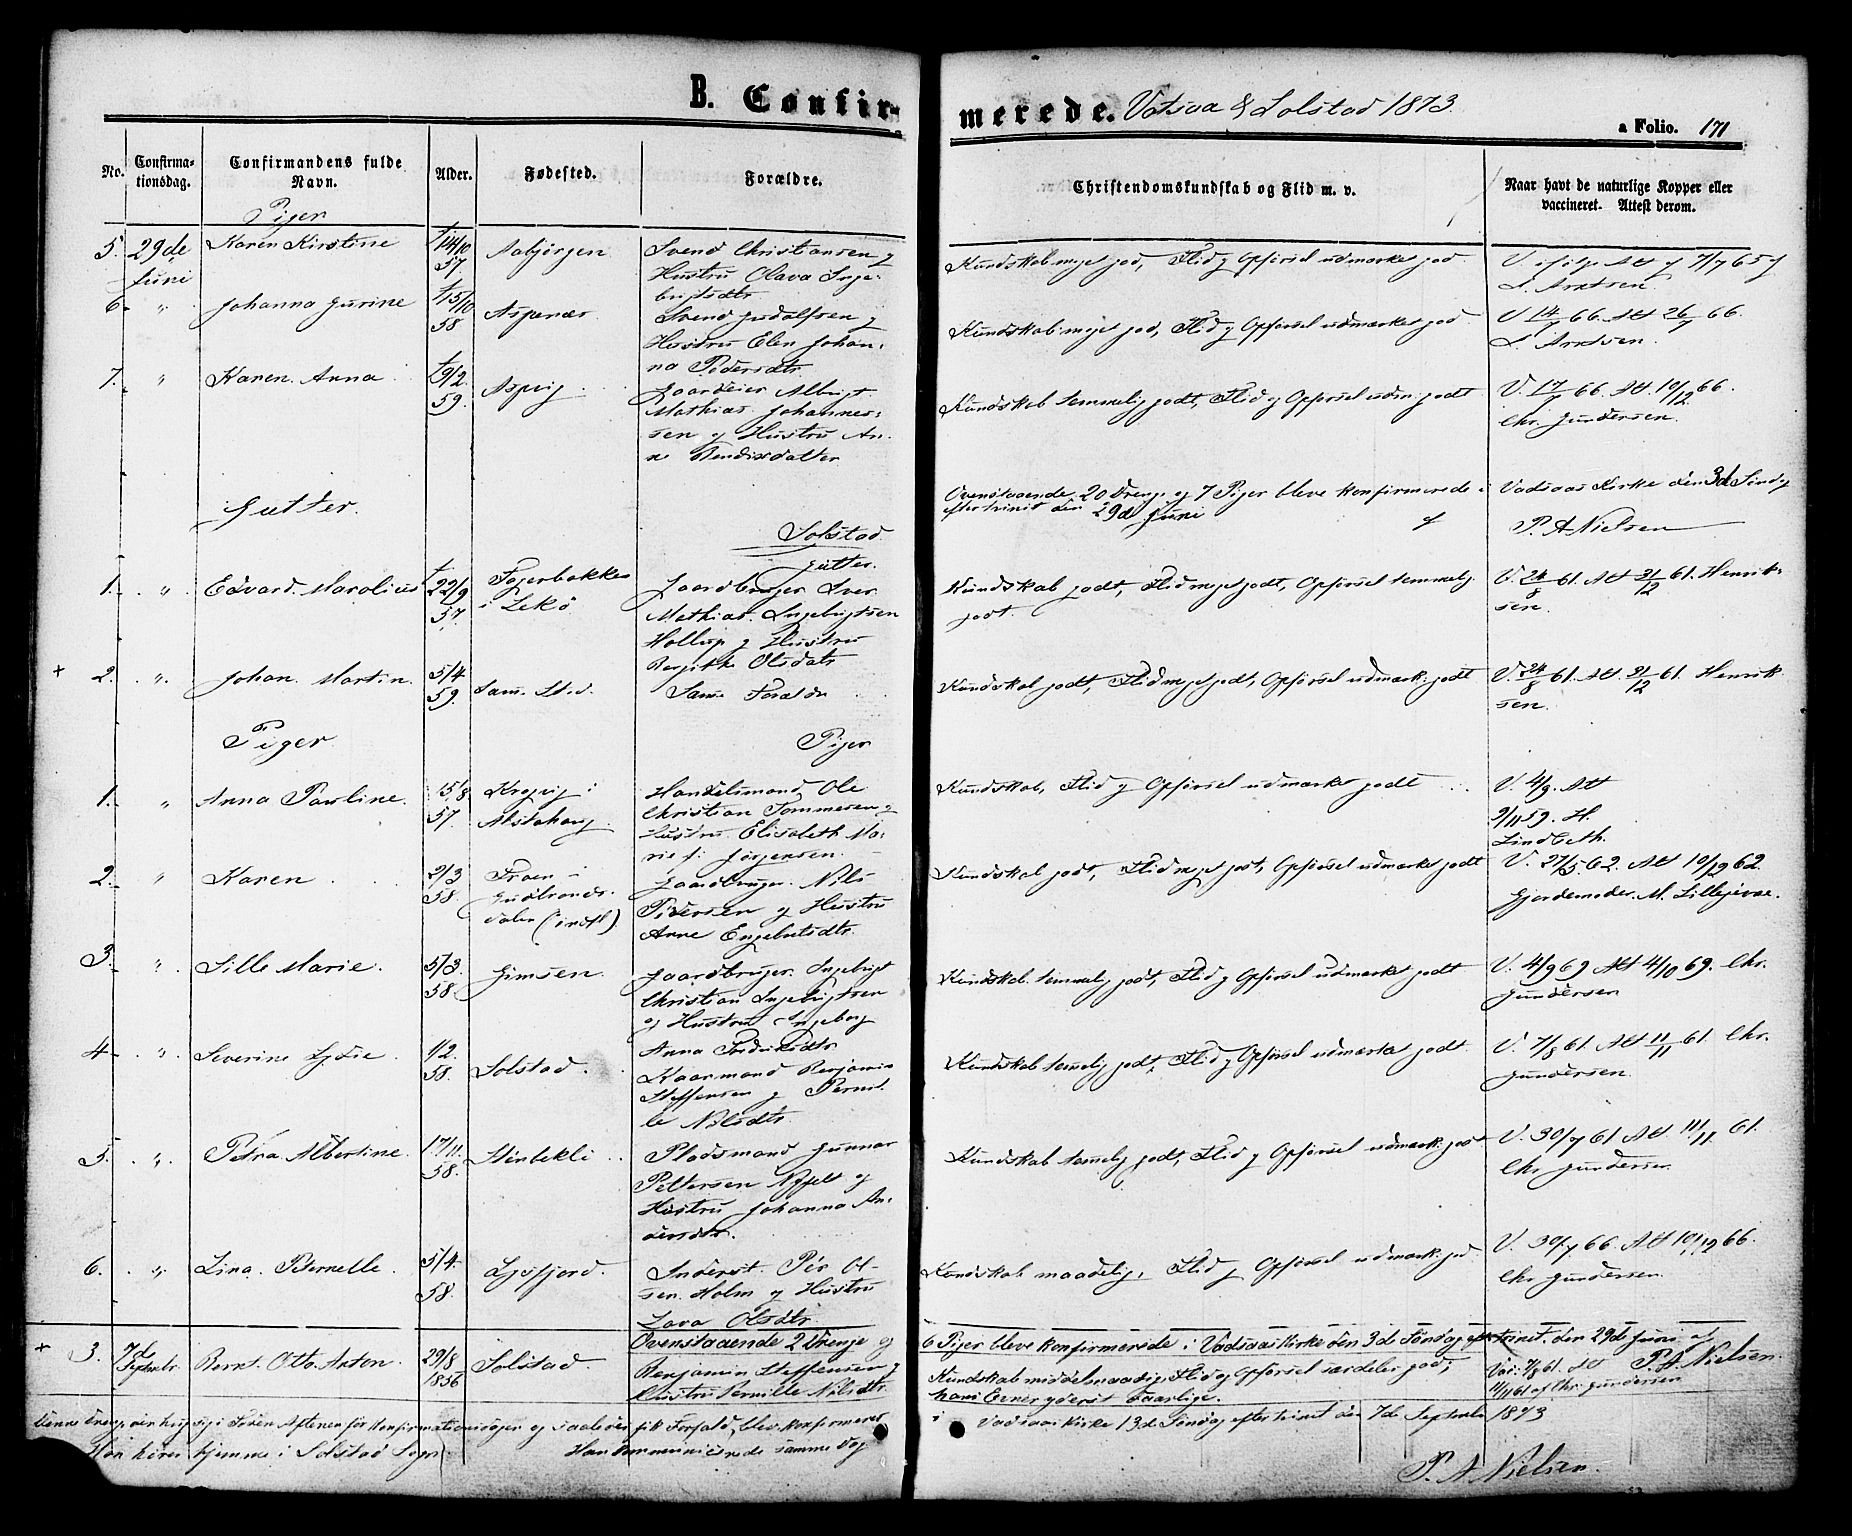 B. Confirmerede. Vatsaa & Solstad 1873.
a Folio. 171
No.
Confirma-
tionsdag.
Confirmandens fulde
Navn.
Alder.
Fødested.
Forældre.
Christendomskundskab og Flid m. v.
Naar havt de naturlige Kopper eller
vaccineret. Attest derom.
Piger
5. 29de Juni Karen Kirstine 14/10 57. Aabjørgen
Svend Christiansen
Hustru Olava Inge-
Kundskab meget god, Flid og Opførsel udmærket god
V. 7/7 65
6. " Johanna Gurine 15/10 58 Aspenæs
Svend
Hustru Elen Johan-
na Pedersdtr.
Kundskab meget god, Flid og Opførsel udmærket god
V 14/7 66. Att 26/7 66.
7. " Karen Anna 9/2 59. Aspvig
Gaardeier Albrigt
Mathias Johannes-
sen og Hustru An-
ne Bendixdatter
Kundskab temmelig godt, Flid og Opførsel udm. godt
V. 17/7 66. Att. 10/12 66.
Chr. Gundersen.
Ovenstaaende 20 Drenge og 7 Piger bleve konfirmerede i Vadsaas Kirke den 3d Sønd
efter trinit den 29d Juni af P. A Nielsen
Gutter.
Solstad
Gutter.
1. " Edvard Marolius 22/9 57. Fagerbakken i Lekø
Gaardbruger Iver
Mathias Ingebrigtsen
Hollup og Hustru
Bergitte Olsdatr
Kundskab godt, Flid meget godt, Opførsel temmelig
godt.
V. 24/8 61. Att 31/12 61. Henrik-
sen.
+ 2. " Johan Martin. 5/4 59. Sam. Sted.
Sam Foraldr
Kundskab godt, Flid meget godt, Opførsel udmærk. godt
V. 24/8 61. Att. 31/12 61. Henrik
sen.
Piger
Piger
1. " Anna Pauline. 15/8 57. Krogvig i Alstahoug.
Handelsmand Ole
Christian Tommesen og
Hustru Elisabeth Ma-
rie f. Jørgensen.
Kundskab, Flid og Opførsel udmærket godt
V. 4/9. Att
9/11 59. H.
Lindbeth.
2. " Karen 2/3 58. Froen i
Gudbrands-
dalen (indfl).
Gaardbruger Nils
Pedersen og Hustru
Anne Engebretsdtr.
Kundskab godt, Flid meget godt, Opførsel udmærket godt
V. 27/5 62. Att 10/12 62.
Gjordemoder. M. Lillejevne.
3. " Sille Marie. 5/3 58. Gimsen.
Gaardbruger Ingebrigt
Christian Ingebrigtsen
og Hustru Ingeborg
Anna Fredriksdtr
Kundskab temmelig godt, Flid og Opførsel udmærket godt
V. 4/9 69 Att 4/10 69. Chr.
Gundersen
4. " Severine 1/2 58. Solstad.
Kaarmand Benjamin
Steffensen og Pernil-
le Nilsdtr.
Kundskab temmelig godt, Flid og Opførsel udmærket godt.
V. 7/8 61. Att 11/11 61. Chr.
Gundersen.
5. " Petra Albertine. 17/11 58.
Pladsmand Gunnar
Pettersen og
Hustru Johanna An-
dersdtr.
Kundskab temmelig godt, Flid og Opførsel udmærk. godt
V. 30/7 61 Att. 11/11 61.
Chr Gundersen
6. " Lina Pernelle. 5/4 58. Lysfjord.
Inderst. Per Ol-
sen Holm og Hustru
Lava Olsdtr.
Kundskab maadelig, Flid og Opførsel udmærk. god
V. 30/7 66. Att 10/12 66.
Chr Gundersen.
Ovenstaaende 2 Drenge og 6 Piger bleve konfirmerede i Vadsaas Kirke den 3d Søndag eft trinit. den 29d Juni af
P. A. Nielsen.
+ 3. 7d Septembr. Bernt Otto Anton. 29/8 1856 Solstad.
Benjamin Steffensen og
Hustru Pernille Nilsdtr.
Kundskab middelmaadig, Flid og Opførsel særdeles god;
hans Evner yderst Faarlige.
Vac. 7/8 61. Att
11/11 61 af Chr. Gundersen
Denne Dreng Aftenen før Konfirmationsdagen og saaledes fik Forfald, blev konfirmeret
i Vadsaas Kirke 13d Søndag efter trinit den 7de September 1873
Han hører hjemme i Solstad Sogn
Han kommunicerede samme Dag
P. A Nielsen.